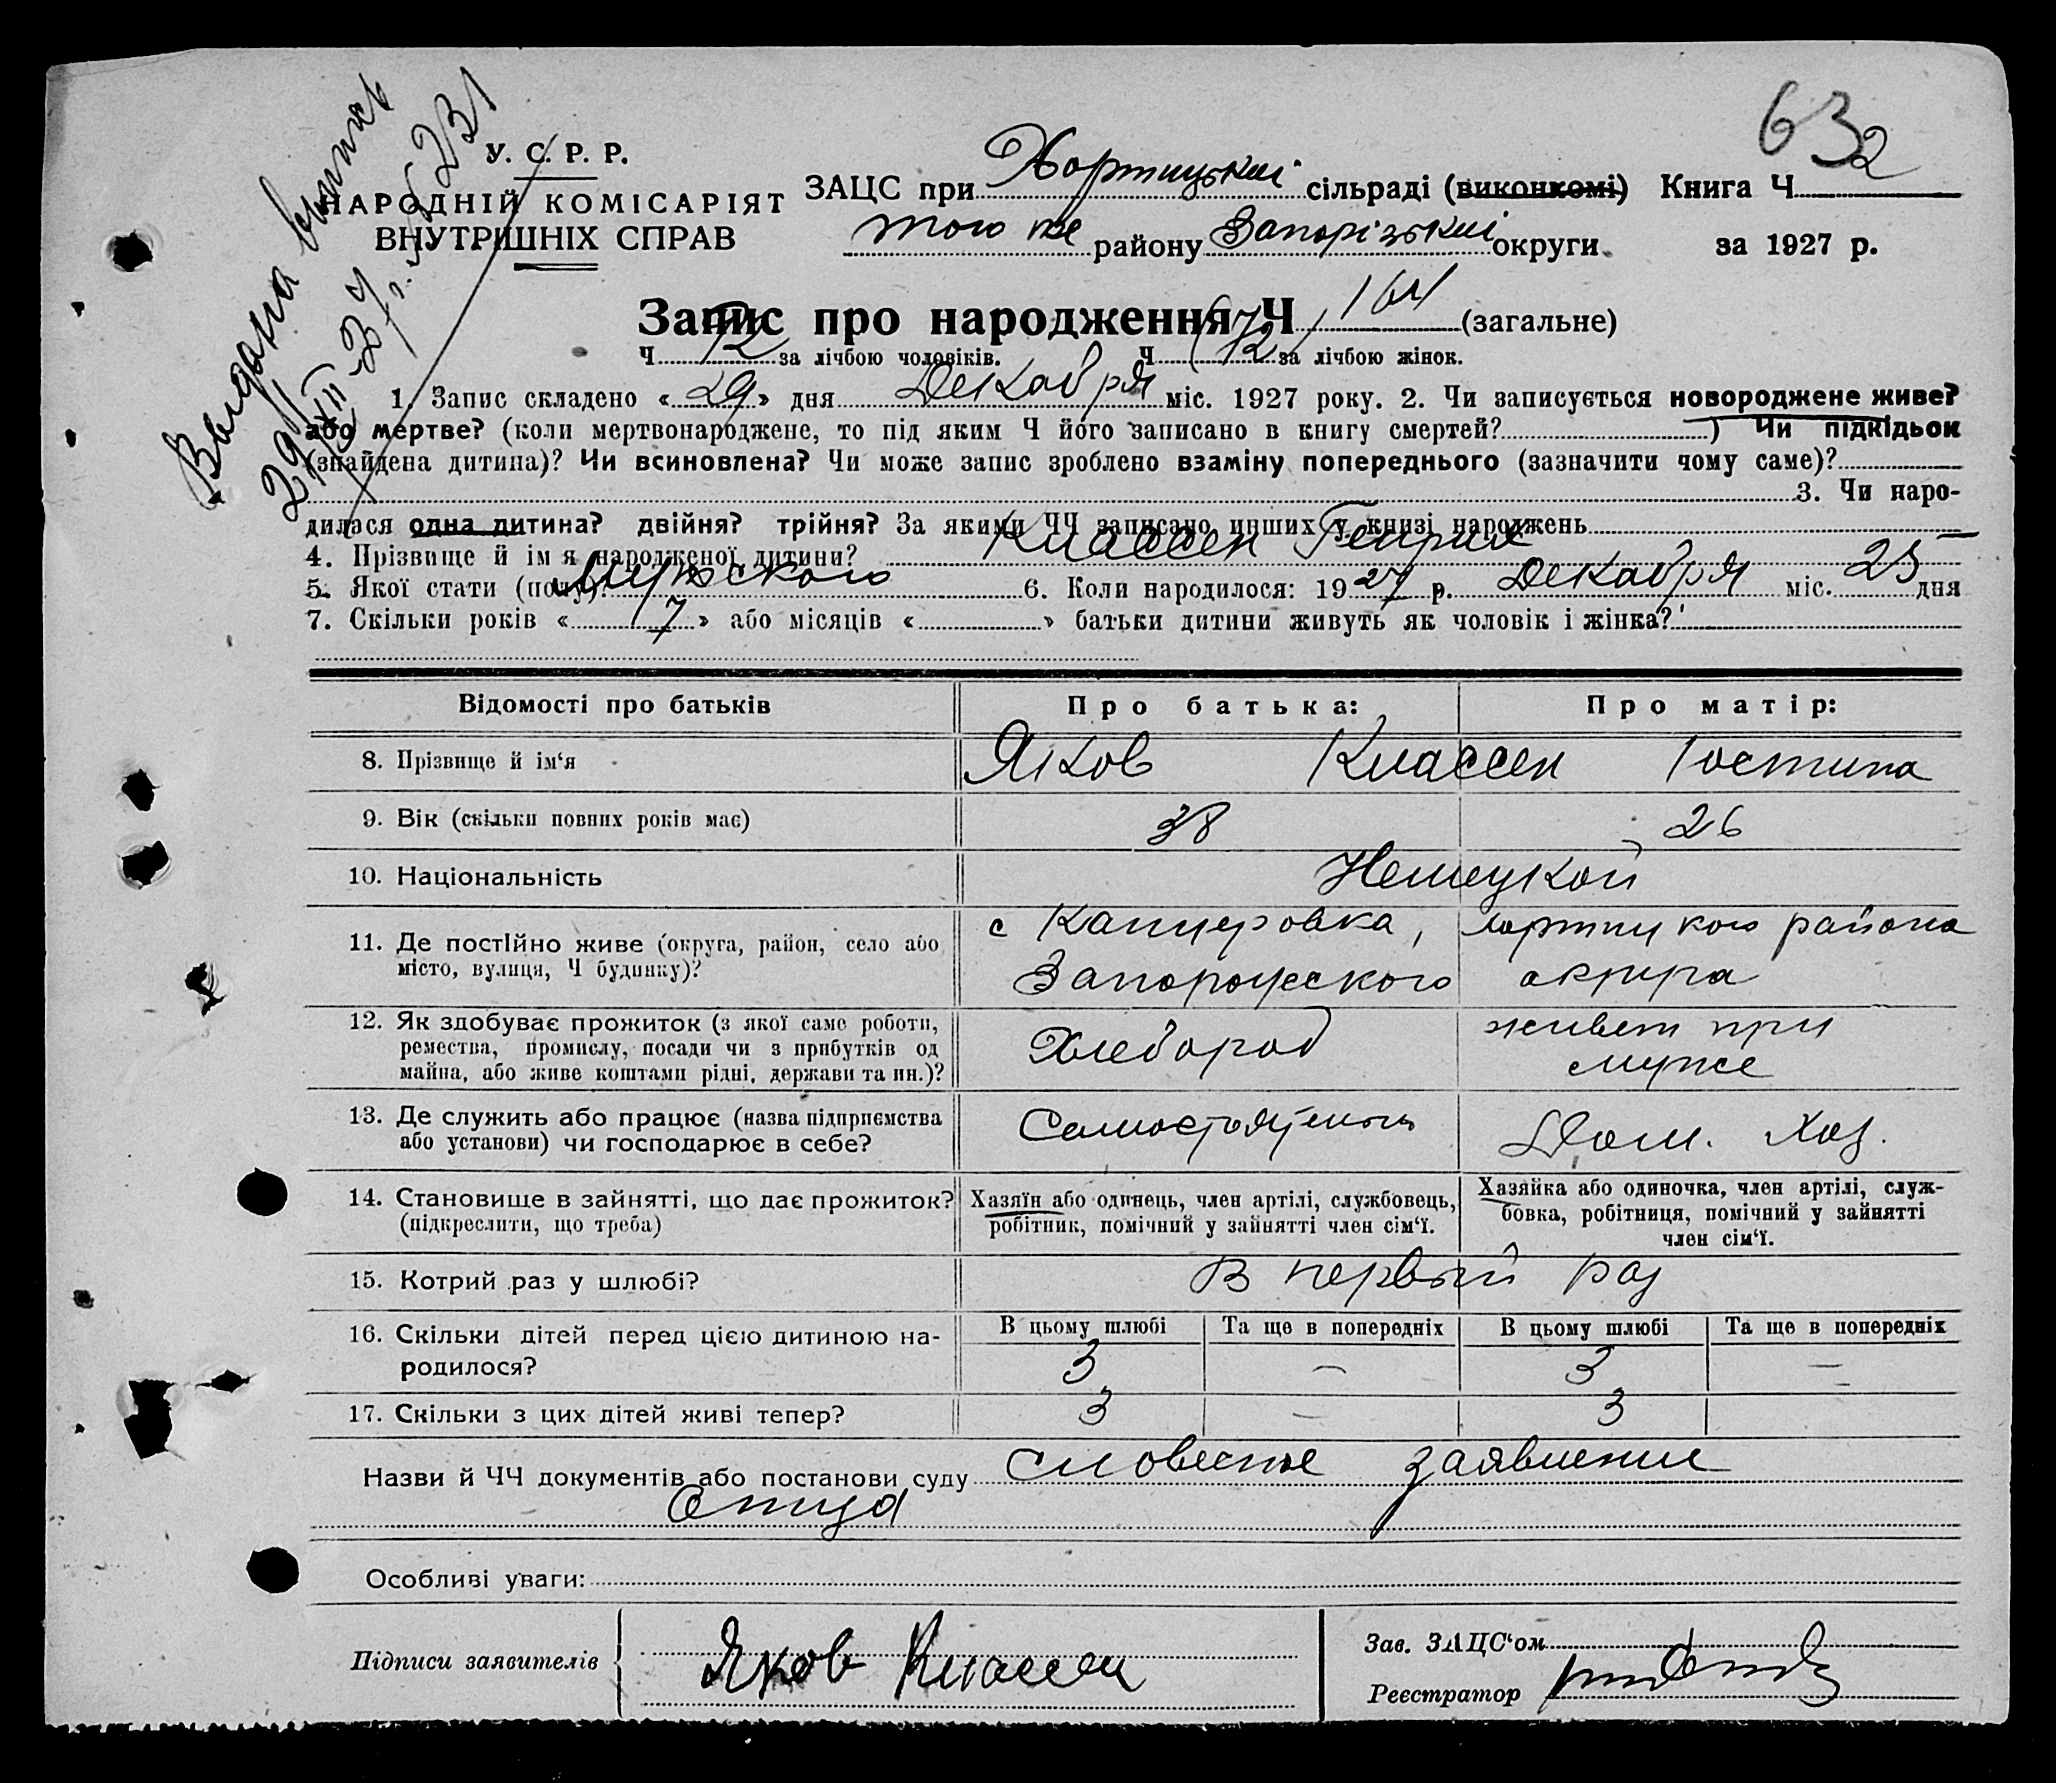 Выдана выпись
29/XII-27 г. № 231
632
У. С. Р. Р.
НАРОДНІЙ КОМІСАРІЯТ
ВНУТРІШНІХ СПРАВ
ЗАЦС при Хортицькій сільраді (виконкомі) Книга Ч
того же району Запорізькій округи за 1927 р.
Запис про народження Ч 164 (загальне)
Ч за лічбою чоловіків. Ч (72) за лічбою жінок.
1. Запис складено «29» дня Декабря міс. 1927 року. 2. Чи записується новороджене живе?
або мертве? (коли мертвонароджене, то під яким Ч його записано в книгу смертей? ) Чи підкідьок
(знайдена дитина)? Чи всиновлена? Чи може запис зроблено взаміну попереднього (зазначити чому саме)?
3. Чи наро-
дилася одна дитина? двійня? трійня? За якими ЧЧ записано инших у книзі народжень —
4. Прізвище й ім я народженої дитини? Классен Генрих
5. Якої стати (полу)? Мужского 6. Коли народилося: 1927 р. Декабря міс. 25 дня
7. Скільки років «7» або місяців « » батьки дитини живуть як чоловік і жінка?
Відомості про батьків Про батька: Про матір:
8. Прізвище й ім‘я Яков Классен Юстина
9. Вік (скільки повних років має) 38 26
10. Національність Немецкой
11. Де постійно живе (округа, район, село або с Канцеровка, Хортицкого района
місто, вулиця, Ч будинку)? Запорожского округа
12. Як здобуває прожиток (з якої саме роботи, живет при
ремества, промислу, посади чи з прибутків од Хлебороб муже
майна, або живе коштами рідні, держави та ин.)?
13. Де служить або працює (назва підприємства Самостоятельно Дом. Хоз.
або установи) чи господарює в себе?
14. Становище в зайнятті, що дає прожиток? Хазяїн або одинець, член артілі, службовець, Хазяйка або одиночка, член артілі, служ-
(підкреслити, що треба) робітник, помічний у зайнятті член сім‘ї. бовка, робітниця, помічний у зайнятті
член сім‘ї.
15. Котрий раз у шлюбі? В первый раз
16. Скільки дітей перед цією дитиною на- В цьому шлюбі Та ще в попередніх В цьому шлюбі Та ще в попередніх
родилося? 3 — 3 —
17. Скільки з цих дітей живі тепер? 3 — 3
Назви й ЧЧ документів або постанови суду словесное заявление
Отца
Особливі уваги:
Підписи заявителів Яков Классен
Зав. ЗАЦС‘ом
Реєстратор